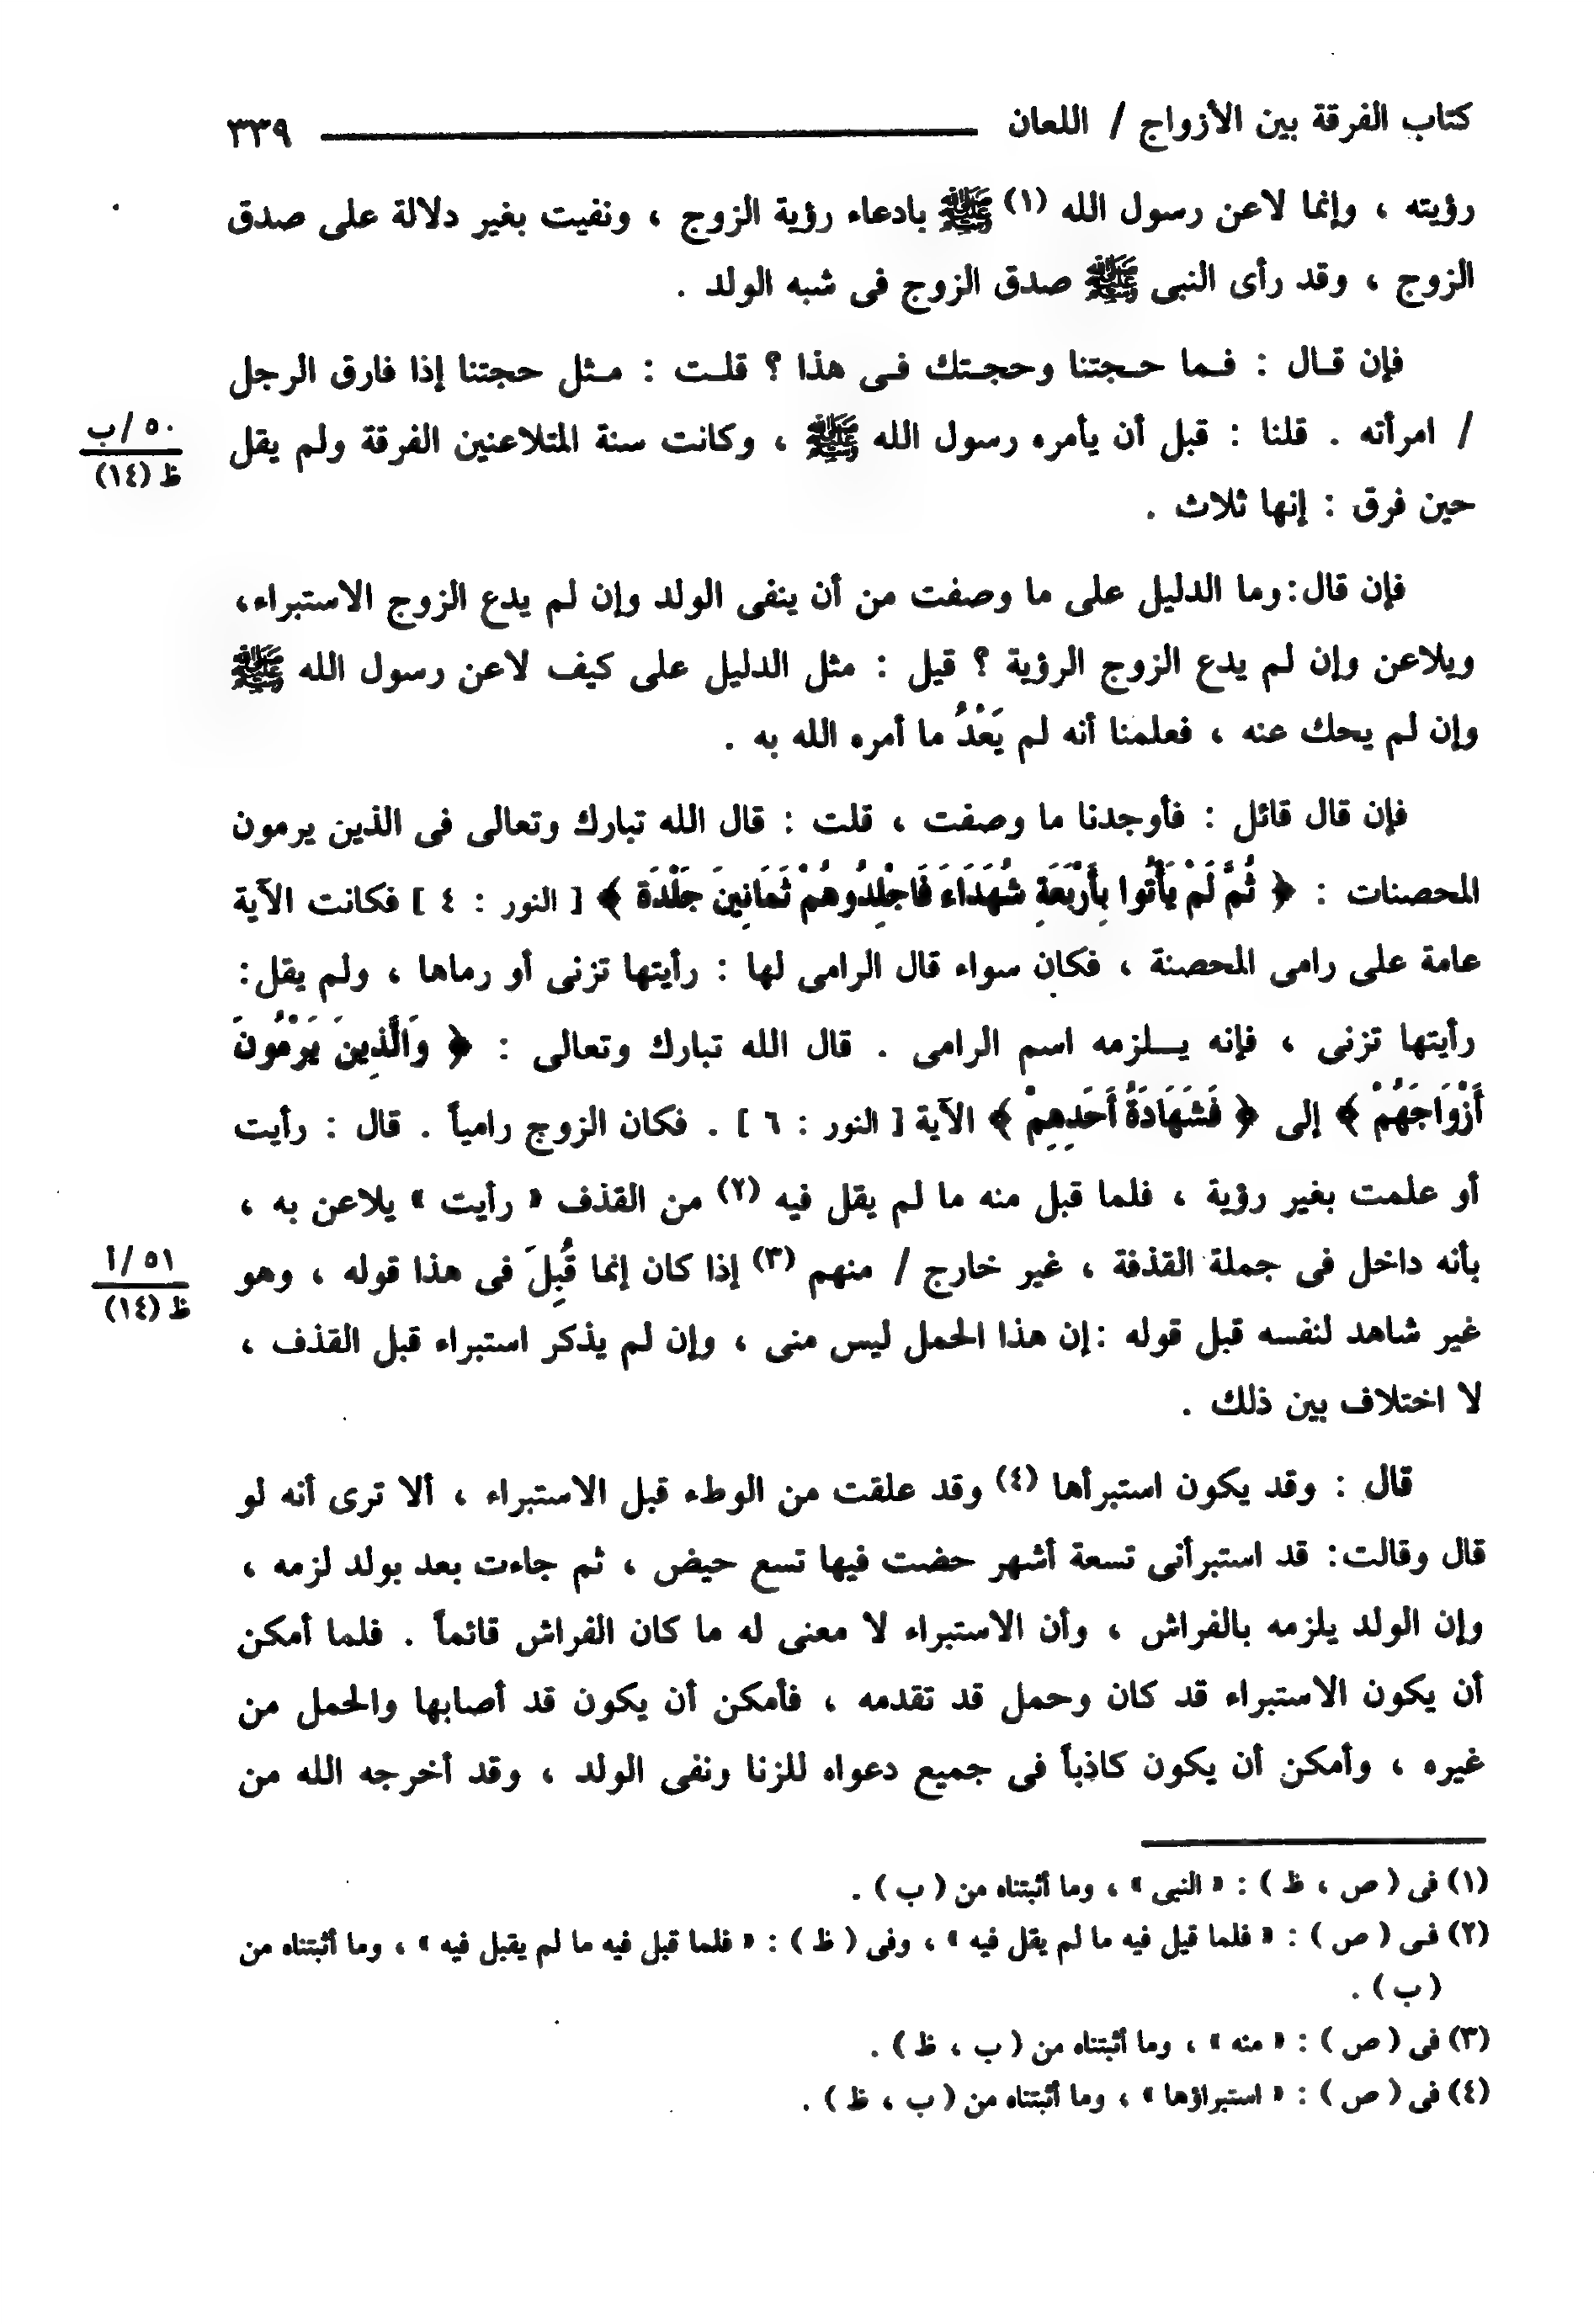 كتاب الفرقة بين الأزواج / اللعان ٣٣٩
رؤيته ، وإنما لاعن رسول الله (١) ﷺ بادعاء رؤية الزوج ، ونفيت بغير دلالة على صدق
الزوج ، وقد رأى النبى ﷺ صدق الزوج فى شبه الولد .
فإن قال : فما حجتنا وحجتك فى هذا ؟ قلت : مثل حجتنا إذا فارق الرجل
/ امرأته . قلنا : قبل أن يأمره رسول الله ﷺ ، وكانت سنة المتلاعنين الفرقة ولم يقل
٥٠ /ب
ظ (١٤)
حين فرق : إنها ثلاث .
فإن قال: وما الدليل على ما وصفت من أن ينفى الولد وإن لم يدع الزوج الاستبراء،
ويلاعن وإن لم يدع الزوج الرؤية ؟ قيل : مثل الدليل على كيف لاعن رسول الله ﷺ
وإن لم يحك عنه ، فعلمنا أنه لم يَعْدُ ما أمره الله به .
فإن قال قائل : فأوجدنا ما وصفت ، قلت : قال الله تبارك وتعالى فى الذين يرمون
المحصنات : ﴿ ثُمَّ لَمْ يَأْتُوا بِأَرْبَعَةِ شُهَدَاءَ فَاجْلِدُوهُمْ ثَمَانِينَ جَلْدَة ﴾ [ النور : ٤ ] فكانت الآية
عامة على رامى المحصنة ، فكان سواء قال الرامى لها : رأيتها تزنى أو رماها ، ولم يقل:
رأيتها تزنى ، فإنه يـلزمه اسم الرامى . قال الله تبارك وتعالى : ﴿ وَالَّذِينَ يَرْمُونَ
أَزْوَاجَهُمْ ﴾ إلى ﴿ فَشَهَادَةُ أَحَدِهِمْ ﴾ الآية [ النور : ٦ ] . فكان الزوج رامياً . قال : رأيت
أو علمت بغير رؤية ، فلما قبل منه ما لم يقل فيه (٢) من القذف « رأيت » يلاعن به ،
بأنه داخل فى جملة القذفة ، غير خارج / منهم (٣) إذا كان إنما قُبِلَ فى هذا قوله ، وهو
٥١ /أ
ظ (١٤)
غير شاهد لنفسه قبل قوله :إن هذا الحمل ليس منى ، وإن لم يذكر استبراء قبل القذف ،
لا اختلاف بين ذلك .
قال : وقد يكون استبرأها (٤) وقد علقت من الوطء قبل الاستبراء ، ألا ترى أنه لو
قال وقالت: قد استبرأنى تسعة أشهر حضت فيها تسع حيض ، ثم جاءت بعد بولد لزمه ،
وإن الولد يلزمه بالفراش ، وأن الاستبراء لا معنى له ما كان الفراش قائماً . فلما أمكن
أن يكون الاستبراء قد كان وحمل قد تقدمه ، فأمكن أن يكون قد أصابها والحمل من
غيره ، وأمكن أن يكون كاذباً فى جميع دعواه للزنا ونفى الولد ، وقد أخرجه الله من
(١) فى ( ص ، ظ ) : « النبى » ، وما أثبتناه من ( ب ) .
(٢) فى ( ص ) : « فلما قيل فيه ما لم يقل فيه » ، وفى ( ظ ) : « فلما قبل فيه ما لم يقبل فيه » ، وما أثبتناه من
( ب ) .
(٣) فى ( ص ) : « منه » ، وما أثبتناه من ( ب ، ظ ) .
(٤) فى ( ص ) : « استبراؤها » ، وما أثبتناه من ( ب ، ظ ) .